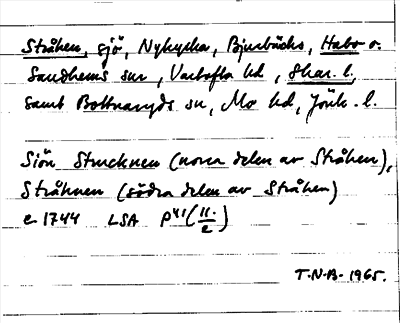 Stråken, sjö, Nykyrka, Bjurbäcks, Habo o.
Sandhems snr, Vartofta hd, Skar. l.
samt Bottnaryds sn, Mo hd, Jönk. l.
Siön Strucknen (norra delen av Stråken),
Stråknen (södra delen av Stråken)
c. 1744 LSA P41 (11./2)
T.N-B- 1965.